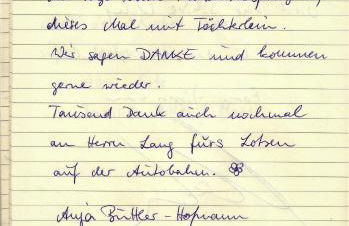 dieses Mal mit Töchterlein.
Wir sagen DANKE und kommen
gerne wieder.
Tausend Dank auch nochmal
an Herrn Lang fürs Lotsen
auf der Autobahn.
Anja Büttler-Hofmann